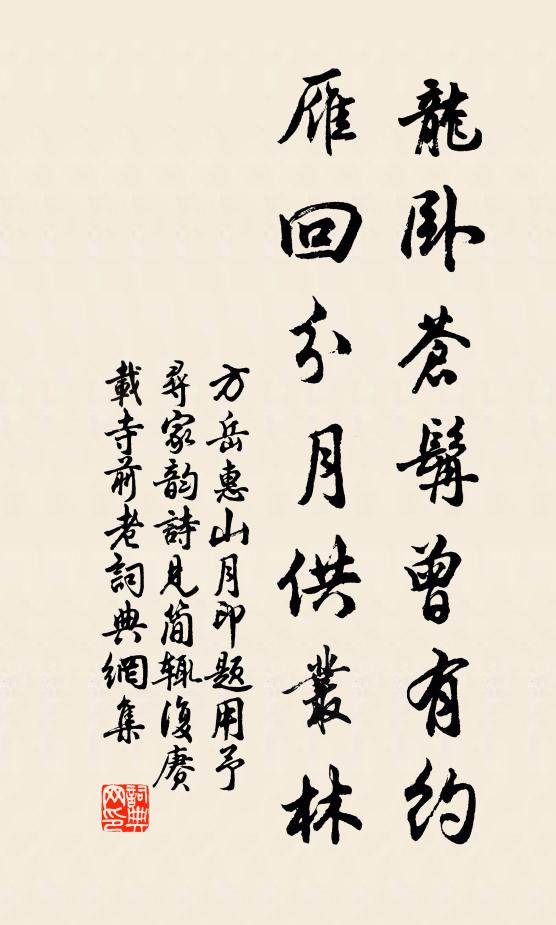 龍臥蒼髯曾有約
雁回分月供叢林
方岳惠山月印題用予
尋家韵詩見简輒復賡
載寺前老詞典網集
詞典网印